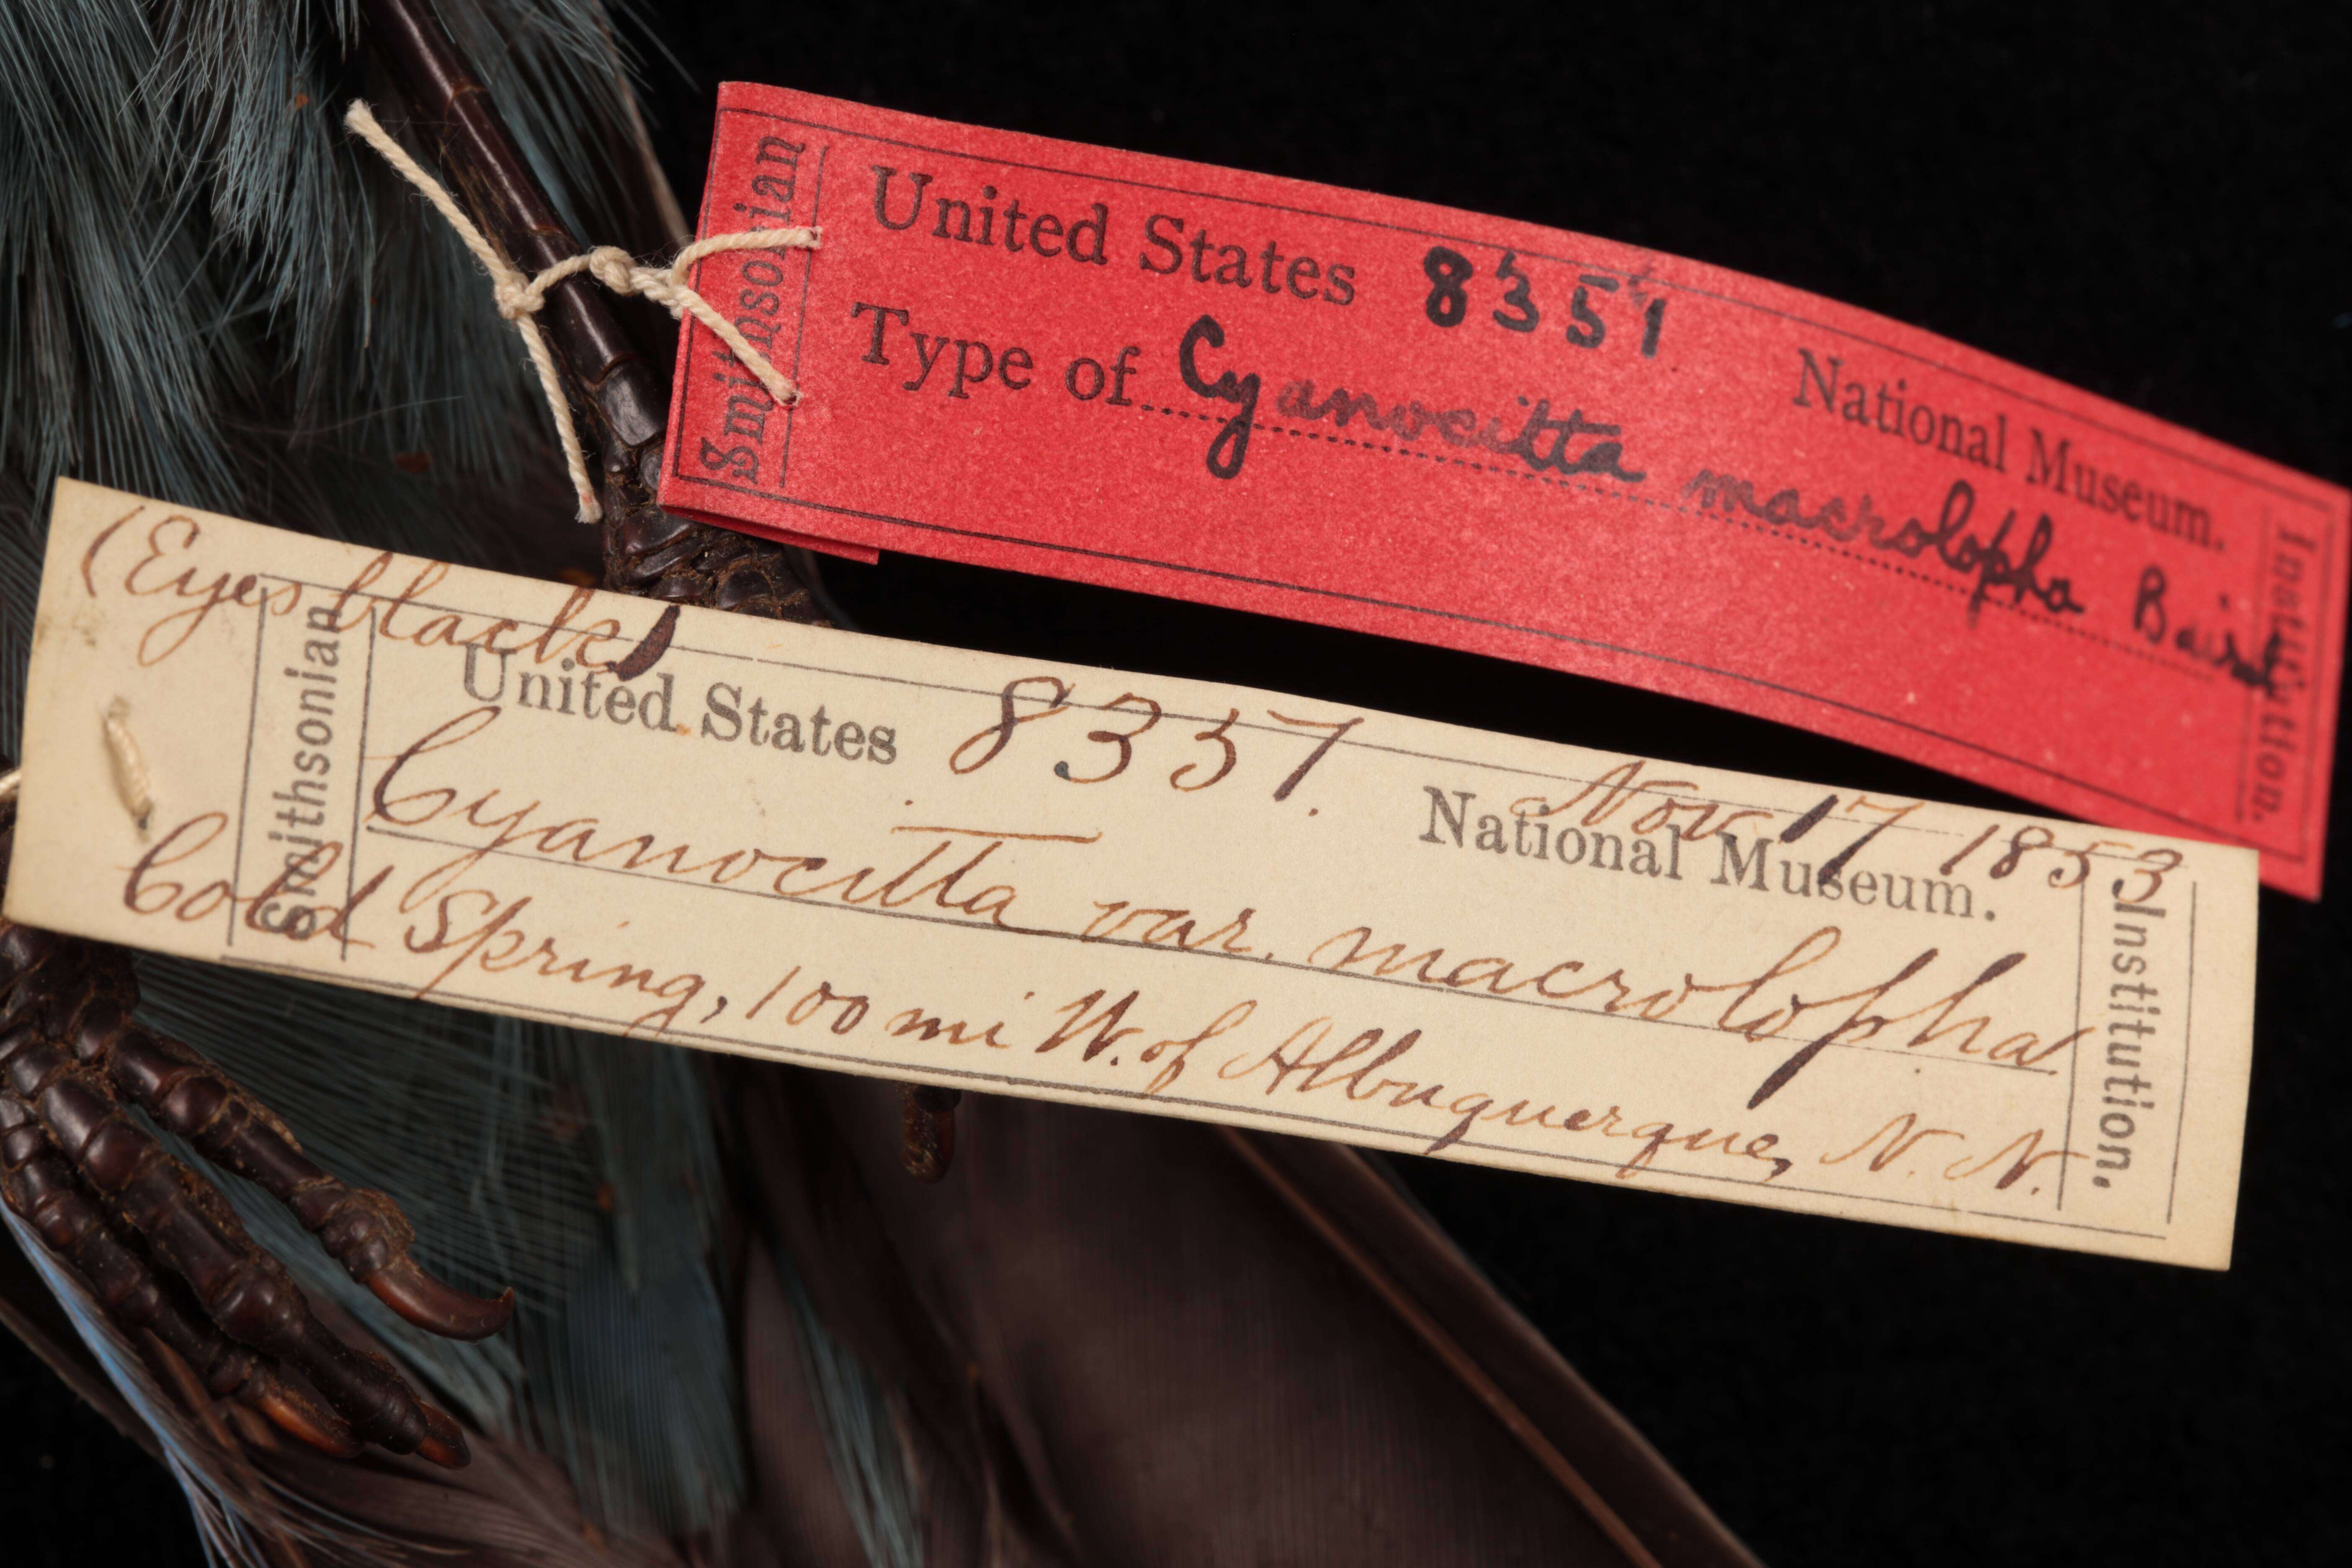 Smithsonian
United States 8351 National Museum.
Type of Cyanocitta macrolopha Baird
Institution.
(Eyes black)
Smithsonian
United States 8351. National Museum.
Nov 17 1853
Cyanocitta var. macrolopha
Cold Spring, 100 mi W. of Albuquerque, N. N.
Institution.